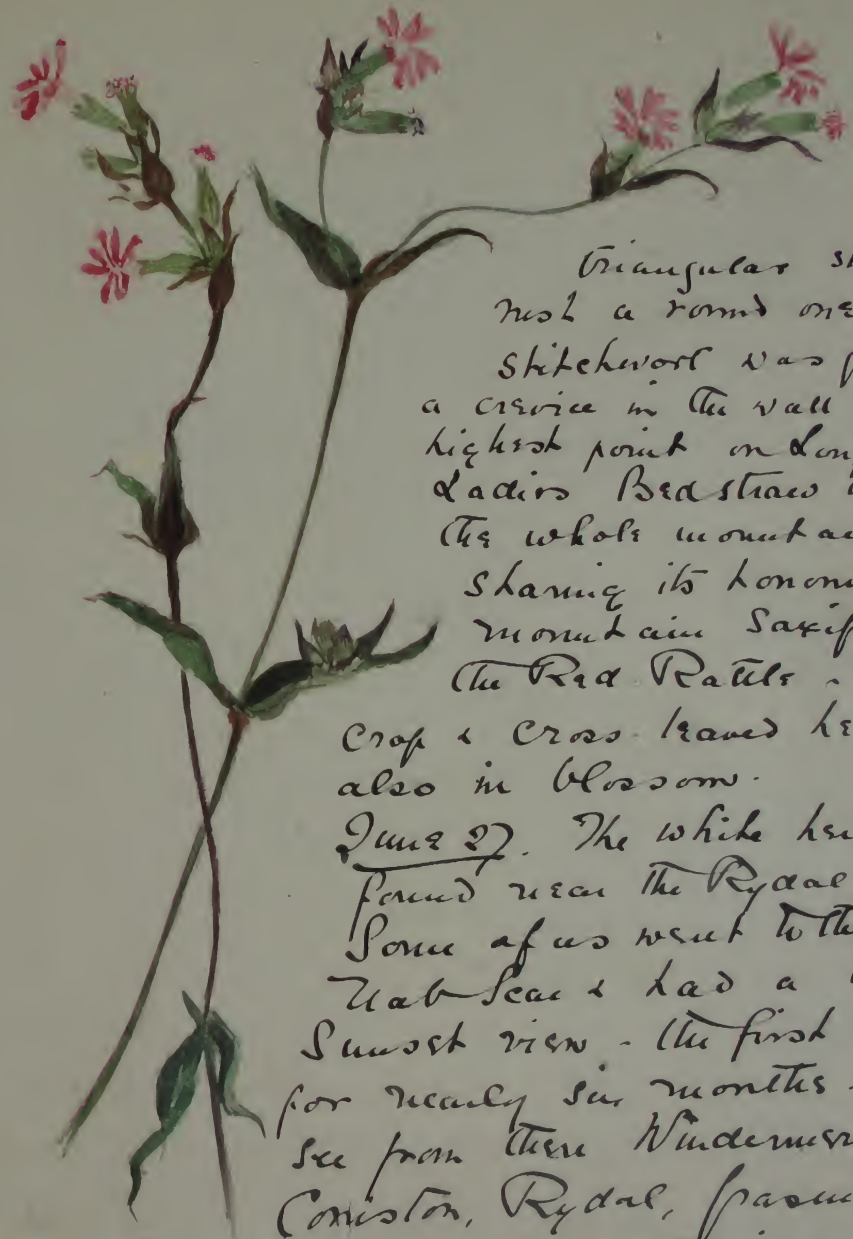 triangular s
rush a round one
Stitchwort was f
a crevice in the wall
highest point on Lon
Ladies Bedstraw
the whole mountai
sharing its honou
mountain Saxif
the Red Rattle -
Crop & cross leaved he
also in blossom.
June 27. The white
found near the Rydal
Some of us went to th
Nab Scar & had a
Sunset view - the first
for nearly six months -
see from there Windermer
Coniston, Rydal, Grasm